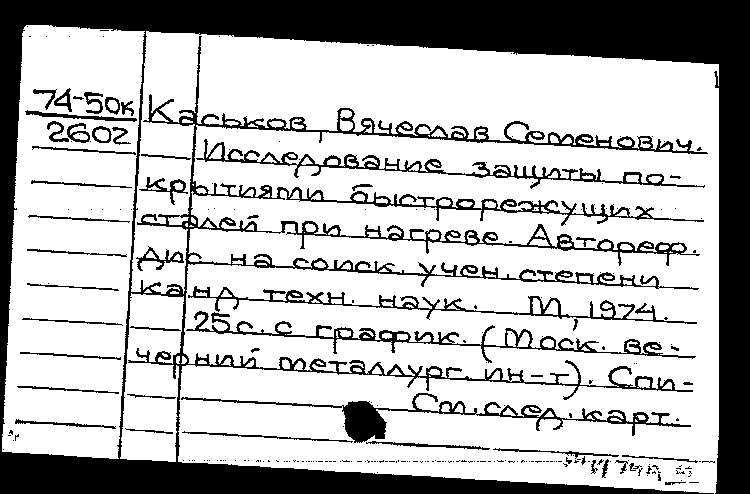 74-50к
2602
Каськов, Вячеслав Семенович.
Исследование защиты по-
крытиями быстрорежущих
сталей при нагреве. Автореф.
дис на соиск. учен. степени
канд техн. наук. М., 1974.
25 с. с график. (Моск. ве-
черний металлург. ин-т). Спи-
См. след. карт.